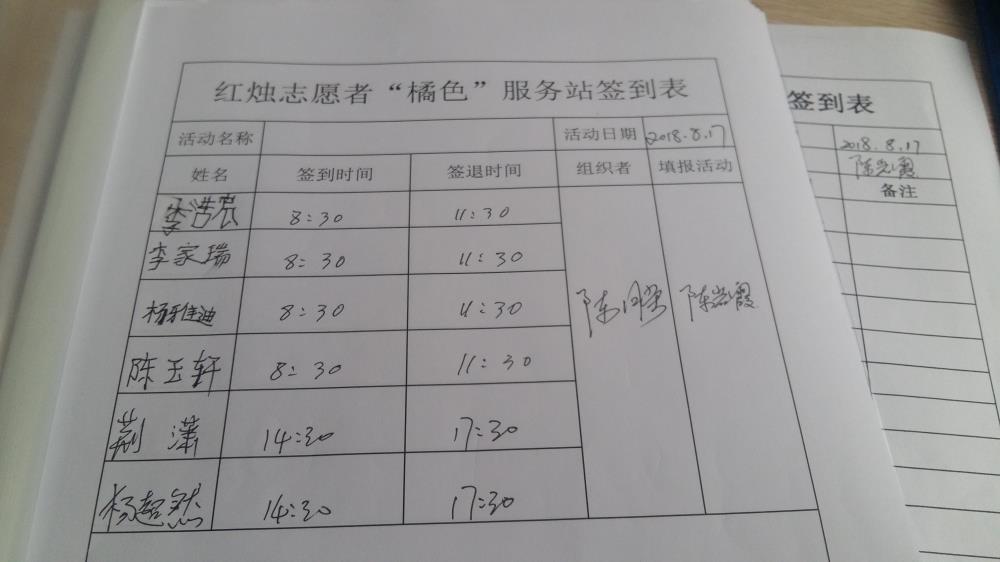 红烛志愿者“橘色”服务站签到表
活动名称 活动日期 2018.8.17
姓名 签到时间 签退时间 组织者 填报活动
李浩宸 8:30 11:30
李家瑞 8:30 11:30
杨雅迪 8:30 11:30
陈玉轩 8:30 11:30
荆潇 14:30 17:30
杨超然 14:30 17:30
签到表
2018.8.17
备注